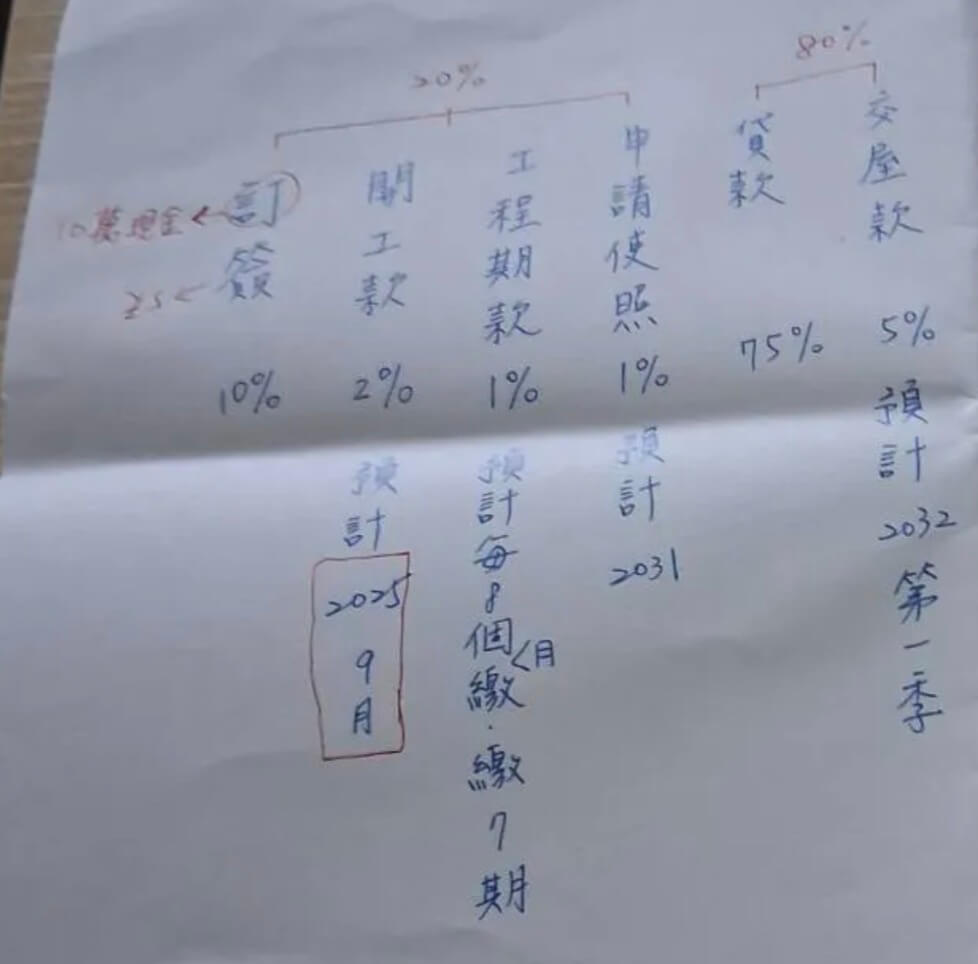 20%
80%
訂簽
10%
10萬現金←
25←
開工款
2%
預計
2025
9月
工程期款
1%
預計每8個<月繳.繳7期
申請使照
1%
預計
2031
貸款
75%
交屋款
5%
預計
2032
第一季